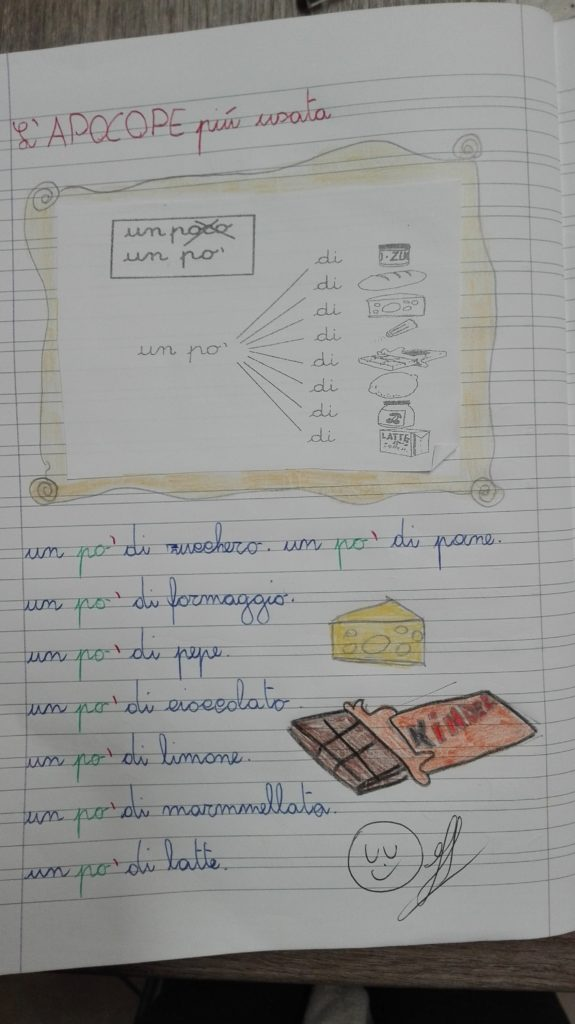 L'APOCOPE piú usata
un poco
un po'
un po'
di
di
di
di
di
di
di
di
LATTE
un po' di zucchero. un po' di pane.
un po' di formaggio.
un po' di pepe.
un po' di cioccolato.
KINDER
un po' di limone.
un po' di marmmellata.
un po' di latte.